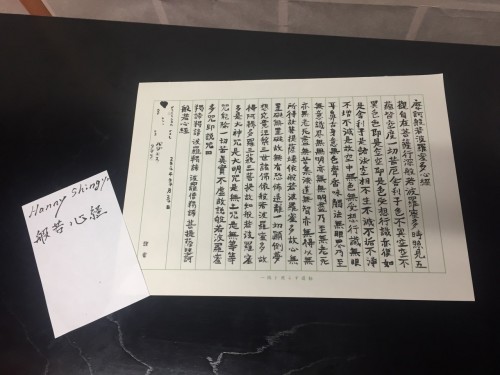 摩訶般若波羅蜜多心経
観自在菩薩行深般若波羅蜜多時照見五
蘊皆空度一切苦厄舎利子色不異空空不
異色色即是空空即是色受想行識亦復如
是舎利子是諸法空相不生不滅不垢不浄
不増不減是故空中無色無受想行識無眼
耳鼻舌身意無色声香味触法無眼界乃至
無意識界無無明亦無無明尽乃至無老死
亦無老死尽無苦集滅道無智亦無得以無
所得故菩提薩埵依般若波羅蜜多故心無
罣礙無罣礙故無有恐怖遠離一切顛倒夢
想究竟涅槃三世諸佛依般若波羅蜜多故
得阿耨多羅三藐三菩提故知般若波羅蜜
多是大神咒是大明咒是無上咒是無等等
咒能除一切苦真実不虚故説般若波羅蜜
多咒即説咒曰
羯諦羯諦波羅羯諦波羅僧羯諦菩提薩婆訶
般若心経
Hanny Shingy
般若心経